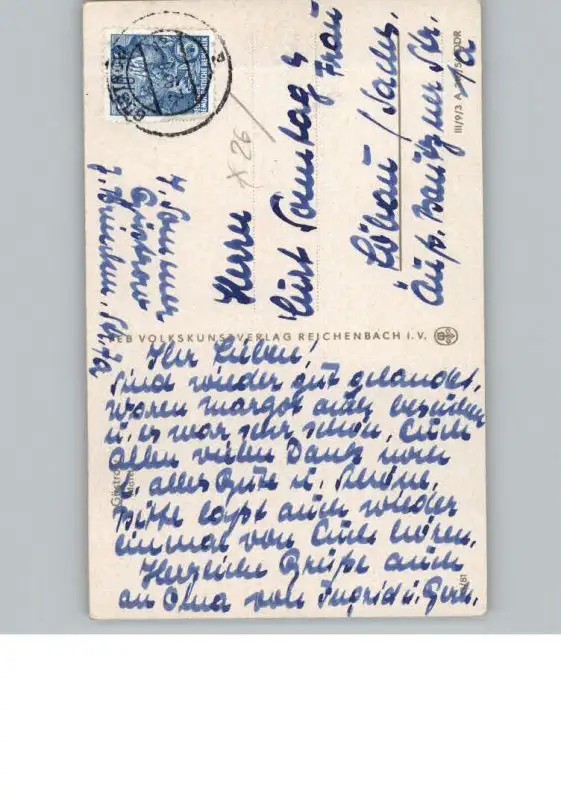 Herrn
Curt Sonntag u
Frau
Löbau / Sachs.
Äuß. Bautzner Str.
Güstrow
VEB VOLKSKUNSTVERLAG REICHENBACH I. V.
III/9/3 A DDR
DEMOKRATISCHE REPUBLIK
x 26/
Ihr Lieben!
Sind wieder gut gelandet,
waren Margot auch besuchen
u. es war sehr schön, Euch
allen vielen Dank noch
alles Gute u. Schöne,
Bitte laßt auch wieder
einmal von Euch hören.
Herzliche Grüße auch
an Oma von Ingrid u. Gerh.
Güstrow